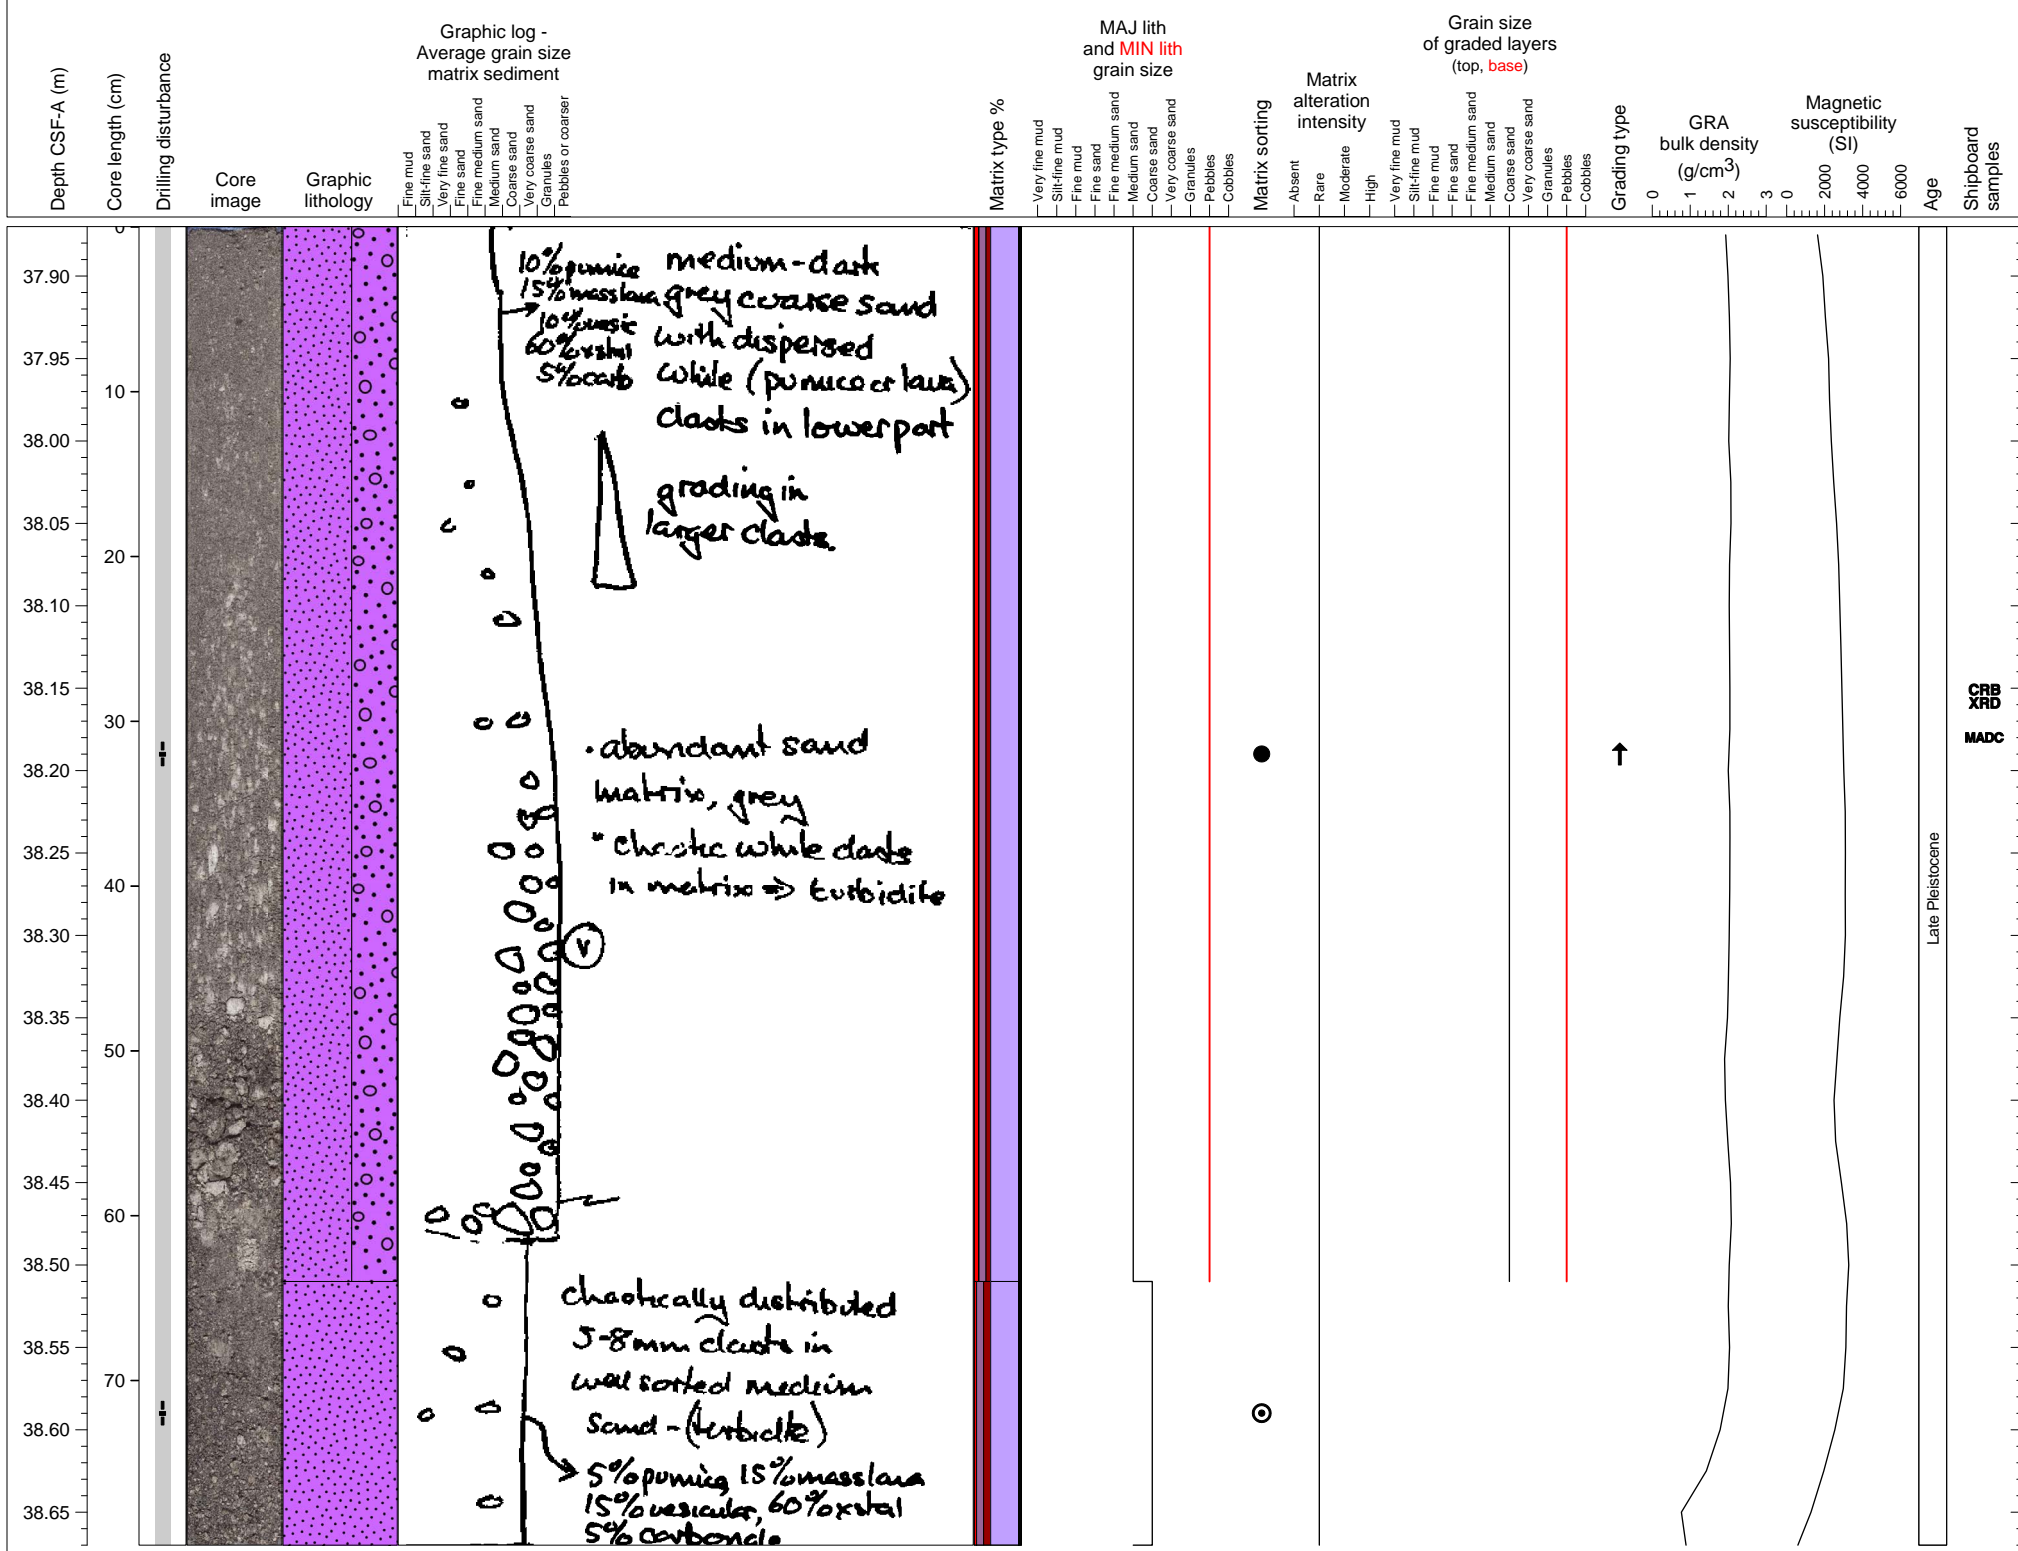 Depth CSF-A (m)
Core length (cm)
Drilling disturbance
Core
image
Graphic
lithology
Graphic log -
Average grain size
matrix sediment
Fine mud
Silt-fine sand
Very fine sand
Fine sand
Fine medium sand
Medium sand
Coarse sand
Very coarse sand
Granules
Pebbles or coarser
Matrix type %
MAJ lith
and MIN lith
grain size
Very fine mud
Silt-fine mud
Fine mud
Fine sand
Fine medium sand
Medium sand
Coarse sand
Very coarse sand
Granules
Pebbles
Cobbles
Matrix sorting
Matrix
alteration
intensity
Absent
Rare
Moderate
High
Grain size
of graded layers
(top, base)
Very fine mud
Silt-fine mud
Fine mud
Fine sand
Fine medium sand
Medium sand
Coarse sand
Very coarse sand
Granules
Pebbles
Cobbles
Grading type
GRA
bulk density
(g/cm3)
0 1 2 3
Magnetic
susceptibility
(SI)
0 2000 4000 6000
Age
Shipboard
samples
37.90
37.95
38.00
38.05
38.10
38.15
38.20
38.25
38.30
38.35
38.40
38.45
38.50
38.55
38.60
38.65
0
10
20
30
40
50
60
70
10% pumice
15% masslava
10% vesic
60% xstal
5% carb
medium-dark
grey coarse sand
with dispersed
white (pumice or lava)
clasts in lower part
grading in
larger clasts.
· abundant sand
matrix, grey
" chaotic white clasts
in matrix => turbidite
V
chaotically distributed
5-8mm clasts in
well sorted medium
sand - (turbidite)
5% pumice, 15% masslava
15% vesicular, 60% xstal
5% carbonate
Late Pleistocene
CRB
XRD
MADC